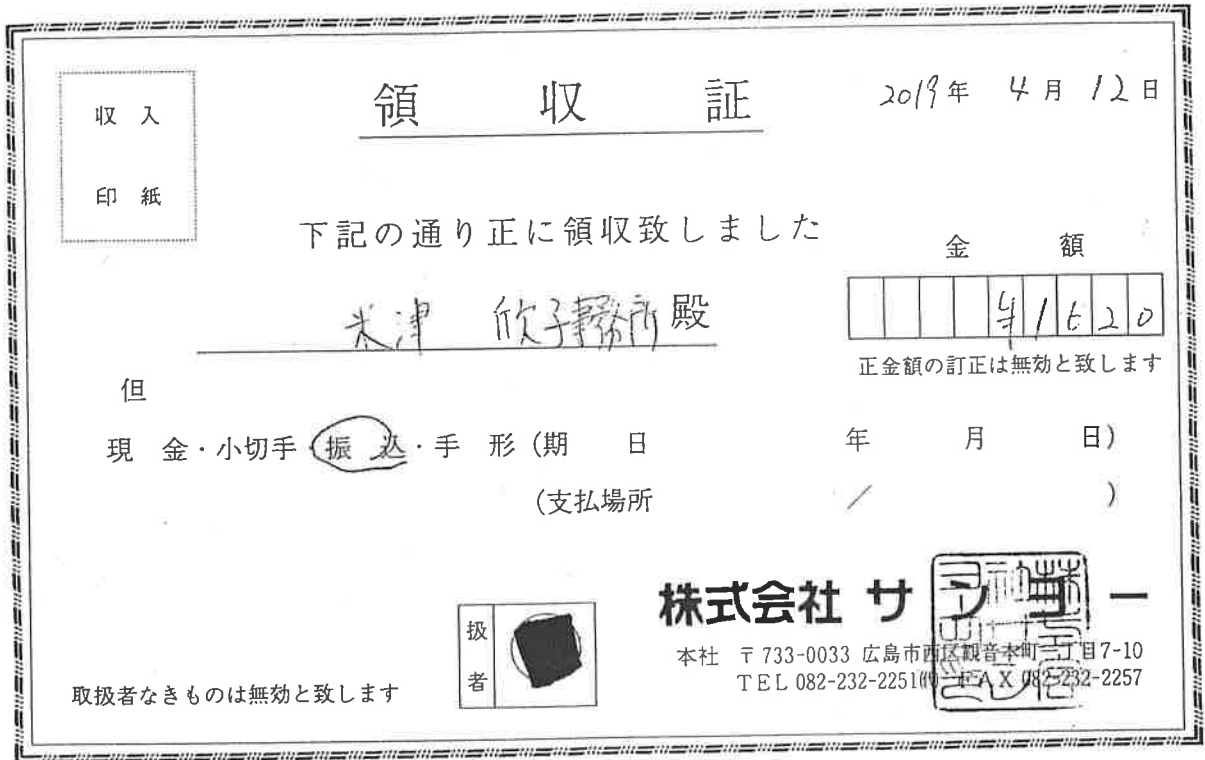 収入
印紙
領収証
2019年 4月 12日
下記の通り正に領収致しました
金額
米津 欣子事務所 殿
¥1620
正金額の訂正は無効と致します
但
現金・小切手・振込・手形(期日 年 月 日)
(支払場所 / )
株式会社サンヨー
扱者
本社 〒733-0033 広島市西区観音本町一丁目7-10
TEL 082-232-2251㈹ FAX 082-232-2257
取扱者なきものは無効と致します